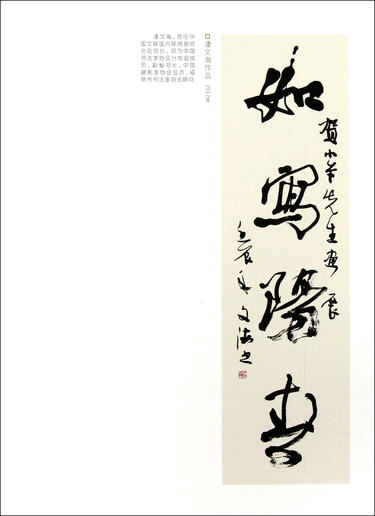 潘文海，曾任中
国文联国内联络部综
合处处长，现为中国
书法家协会分党组成
员，副秘书长，中国
摄影家协会会员，
市书法家协会顾问
潘文海作品 2012年
賀小 先生畫展
如寫陽春
壬辰年文海書